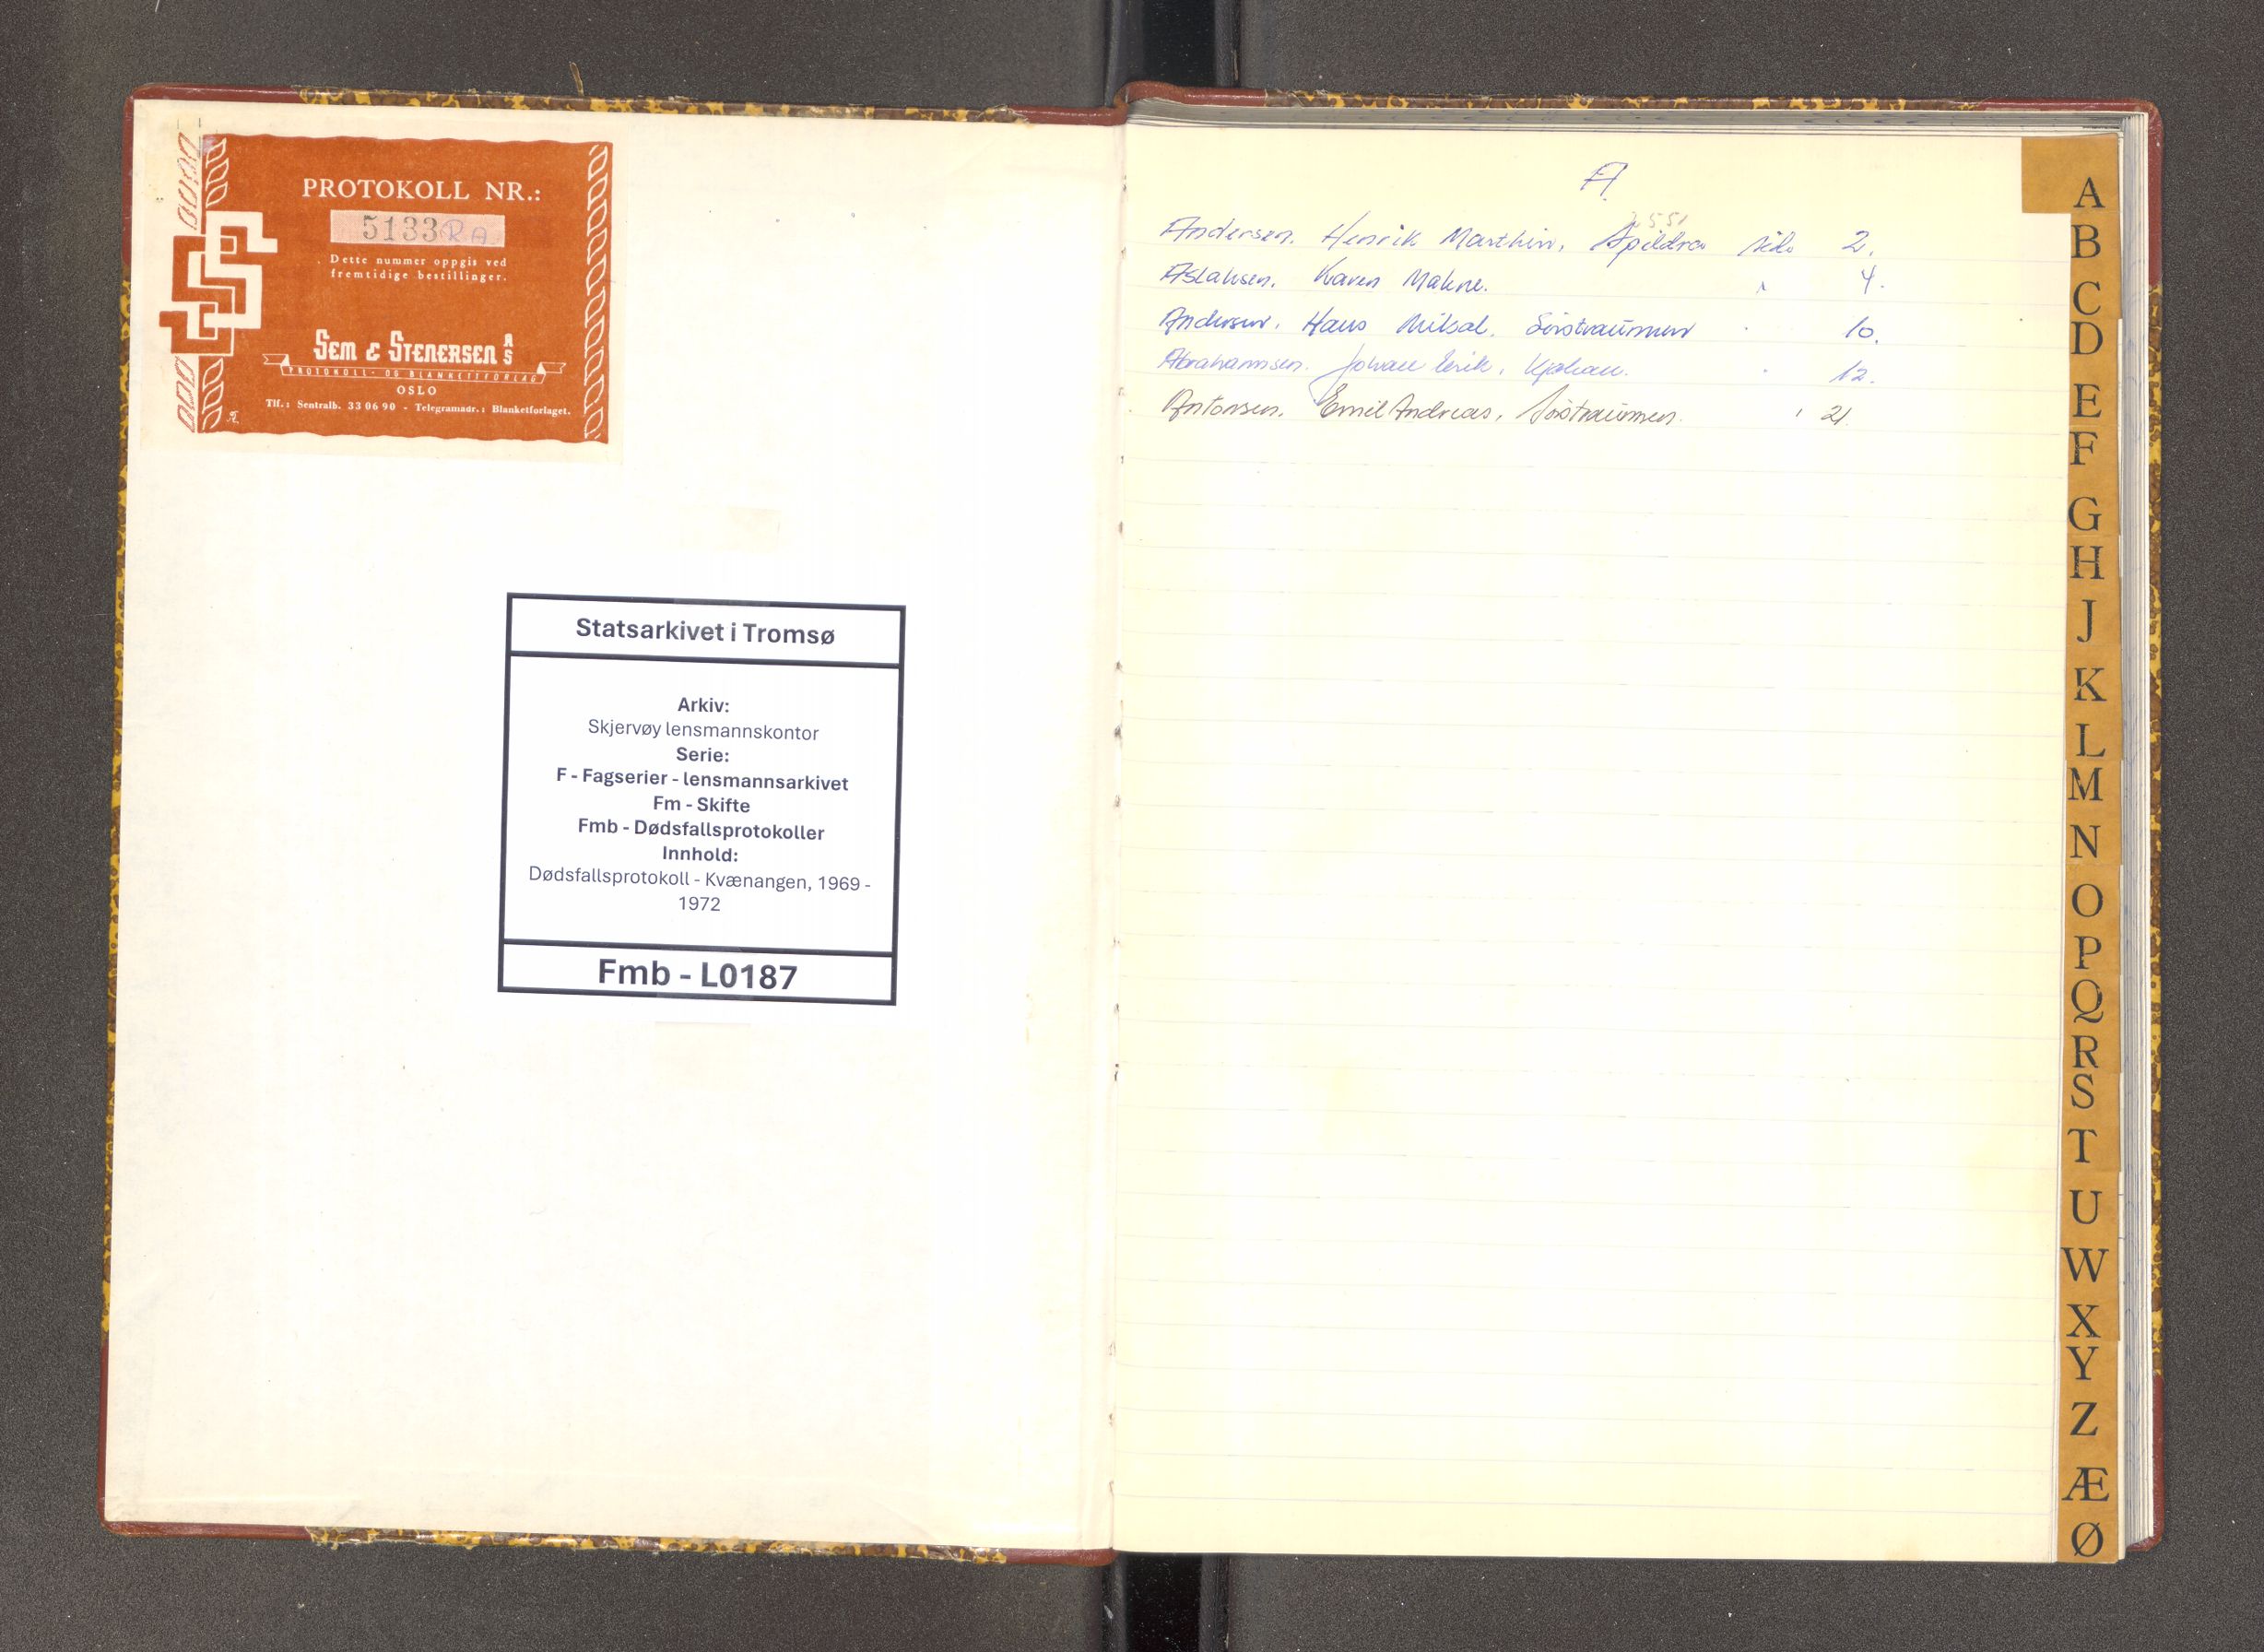 PROTOKOLL NR.:
5133 RA
Dette nummer oppgis ved
fremtidige bestillinger.
SEM & STENERSEN A/S
PROTOKOLL- OG BLANKETTFORLAG
OSLO
Tlf.: Sentralb. 33 06 90 - Telegramadr.: Blanketforlaget.
Statsarkivet i Tromsø
Arkiv:
Skjervøy lensmannskontor
Serie:
F - Fagserier - lensmannsarkivet
Fm - Skifte
Fmb - Dødsfallsprotokoller
Innhold:
Dødsfallsprotokoll - Kvænangen, 1969 -
1972
Fmb - L0187
A
Andersen, Henrik Marthin, Spildra side 2.
Aslaksen, Karen Malene. " 4.
Andersen, Hans Sørstraumen " 10.
Abrahamsen. Johan Erik, " 12.
Antonsen, Emil Andreas, Sørstraumen. " 21.
A
B
C
D
E
F
G
H
J
K
L
M
N
O
P
Q
R
S
T
U
W
X
Y
Z
Æ
Ø